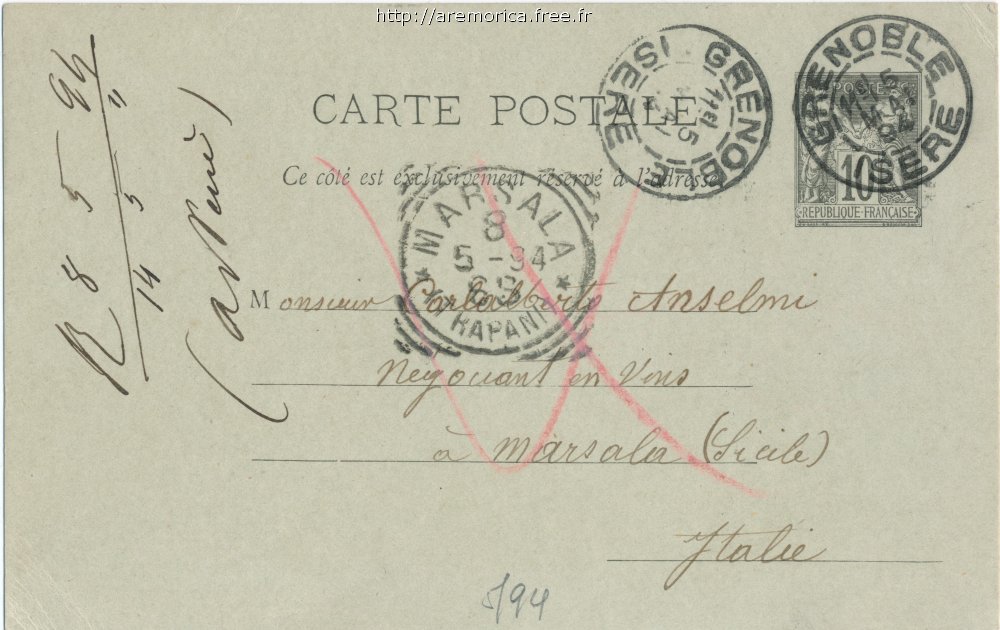 http://aremorica.free.fr
CARTE POSTALE
Ce côté est exclusivement réservé à l'adresse
GRENOBLE
5
MAI
94
ISÈRE
GRENOBLE
5
ISÈRE
POSTES
10
RÉPUBLIQUE FRANÇAISE
MARSALA
8
5-94
TRAPANI
R 8 5 94
14 5
Monsieur Carlalberto Anselmi
Négociant en Vins
à Marsala (Sicile)
Italie
5/94